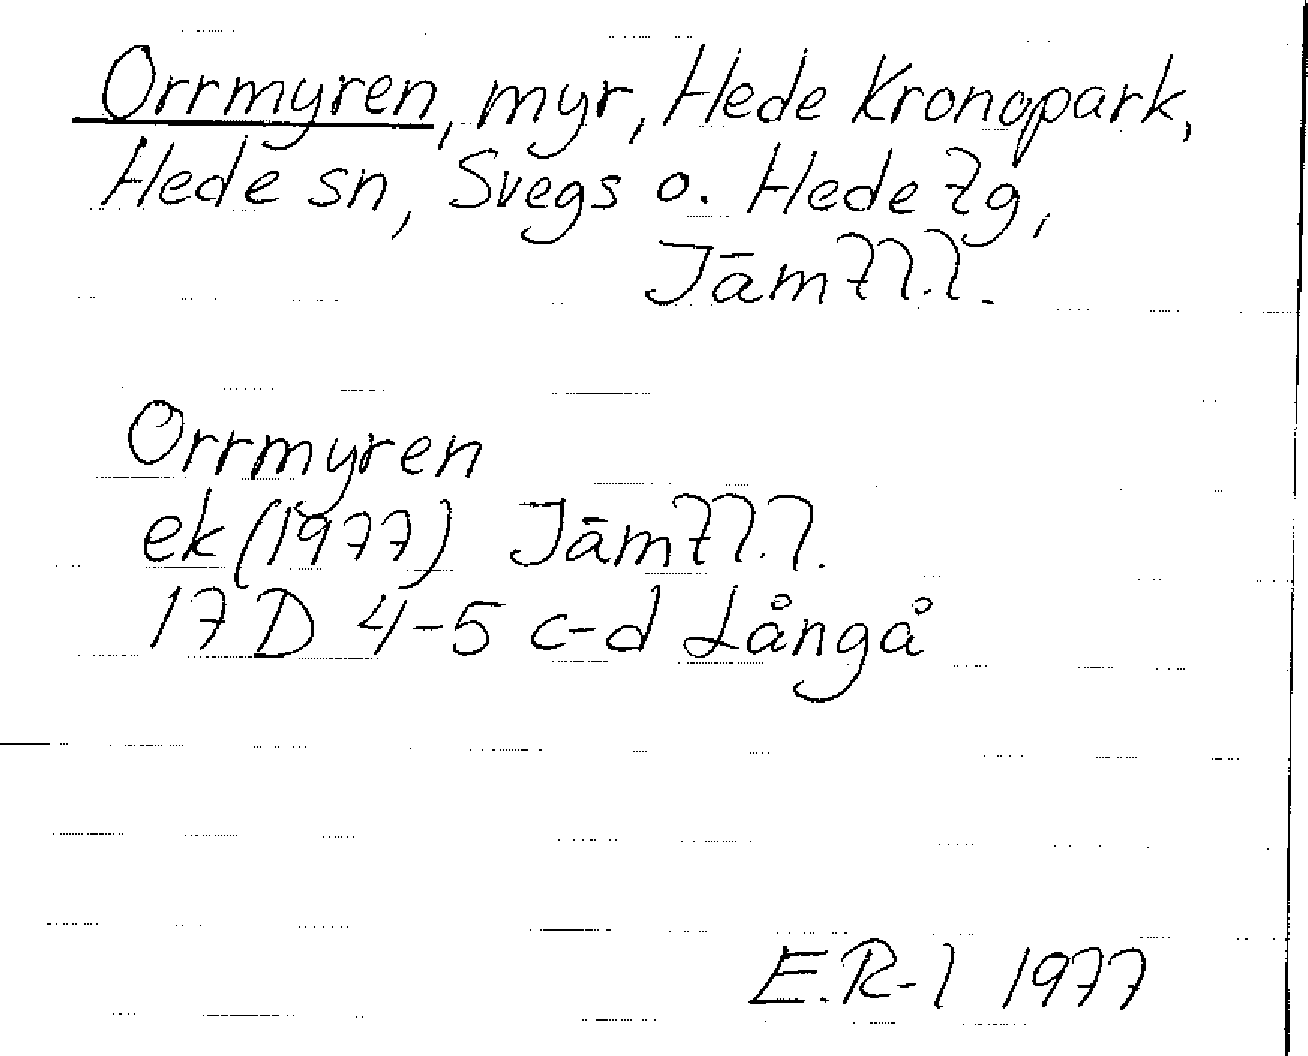 Orrmyren, myr, Hede Kronopark,
Hede sn, Svegs o. Hede tg,
Jämtl.l.
Orrmyren
ek (1977) Jämtl.l.
17 D 4-5 c-d Långå
E.R-l 1977